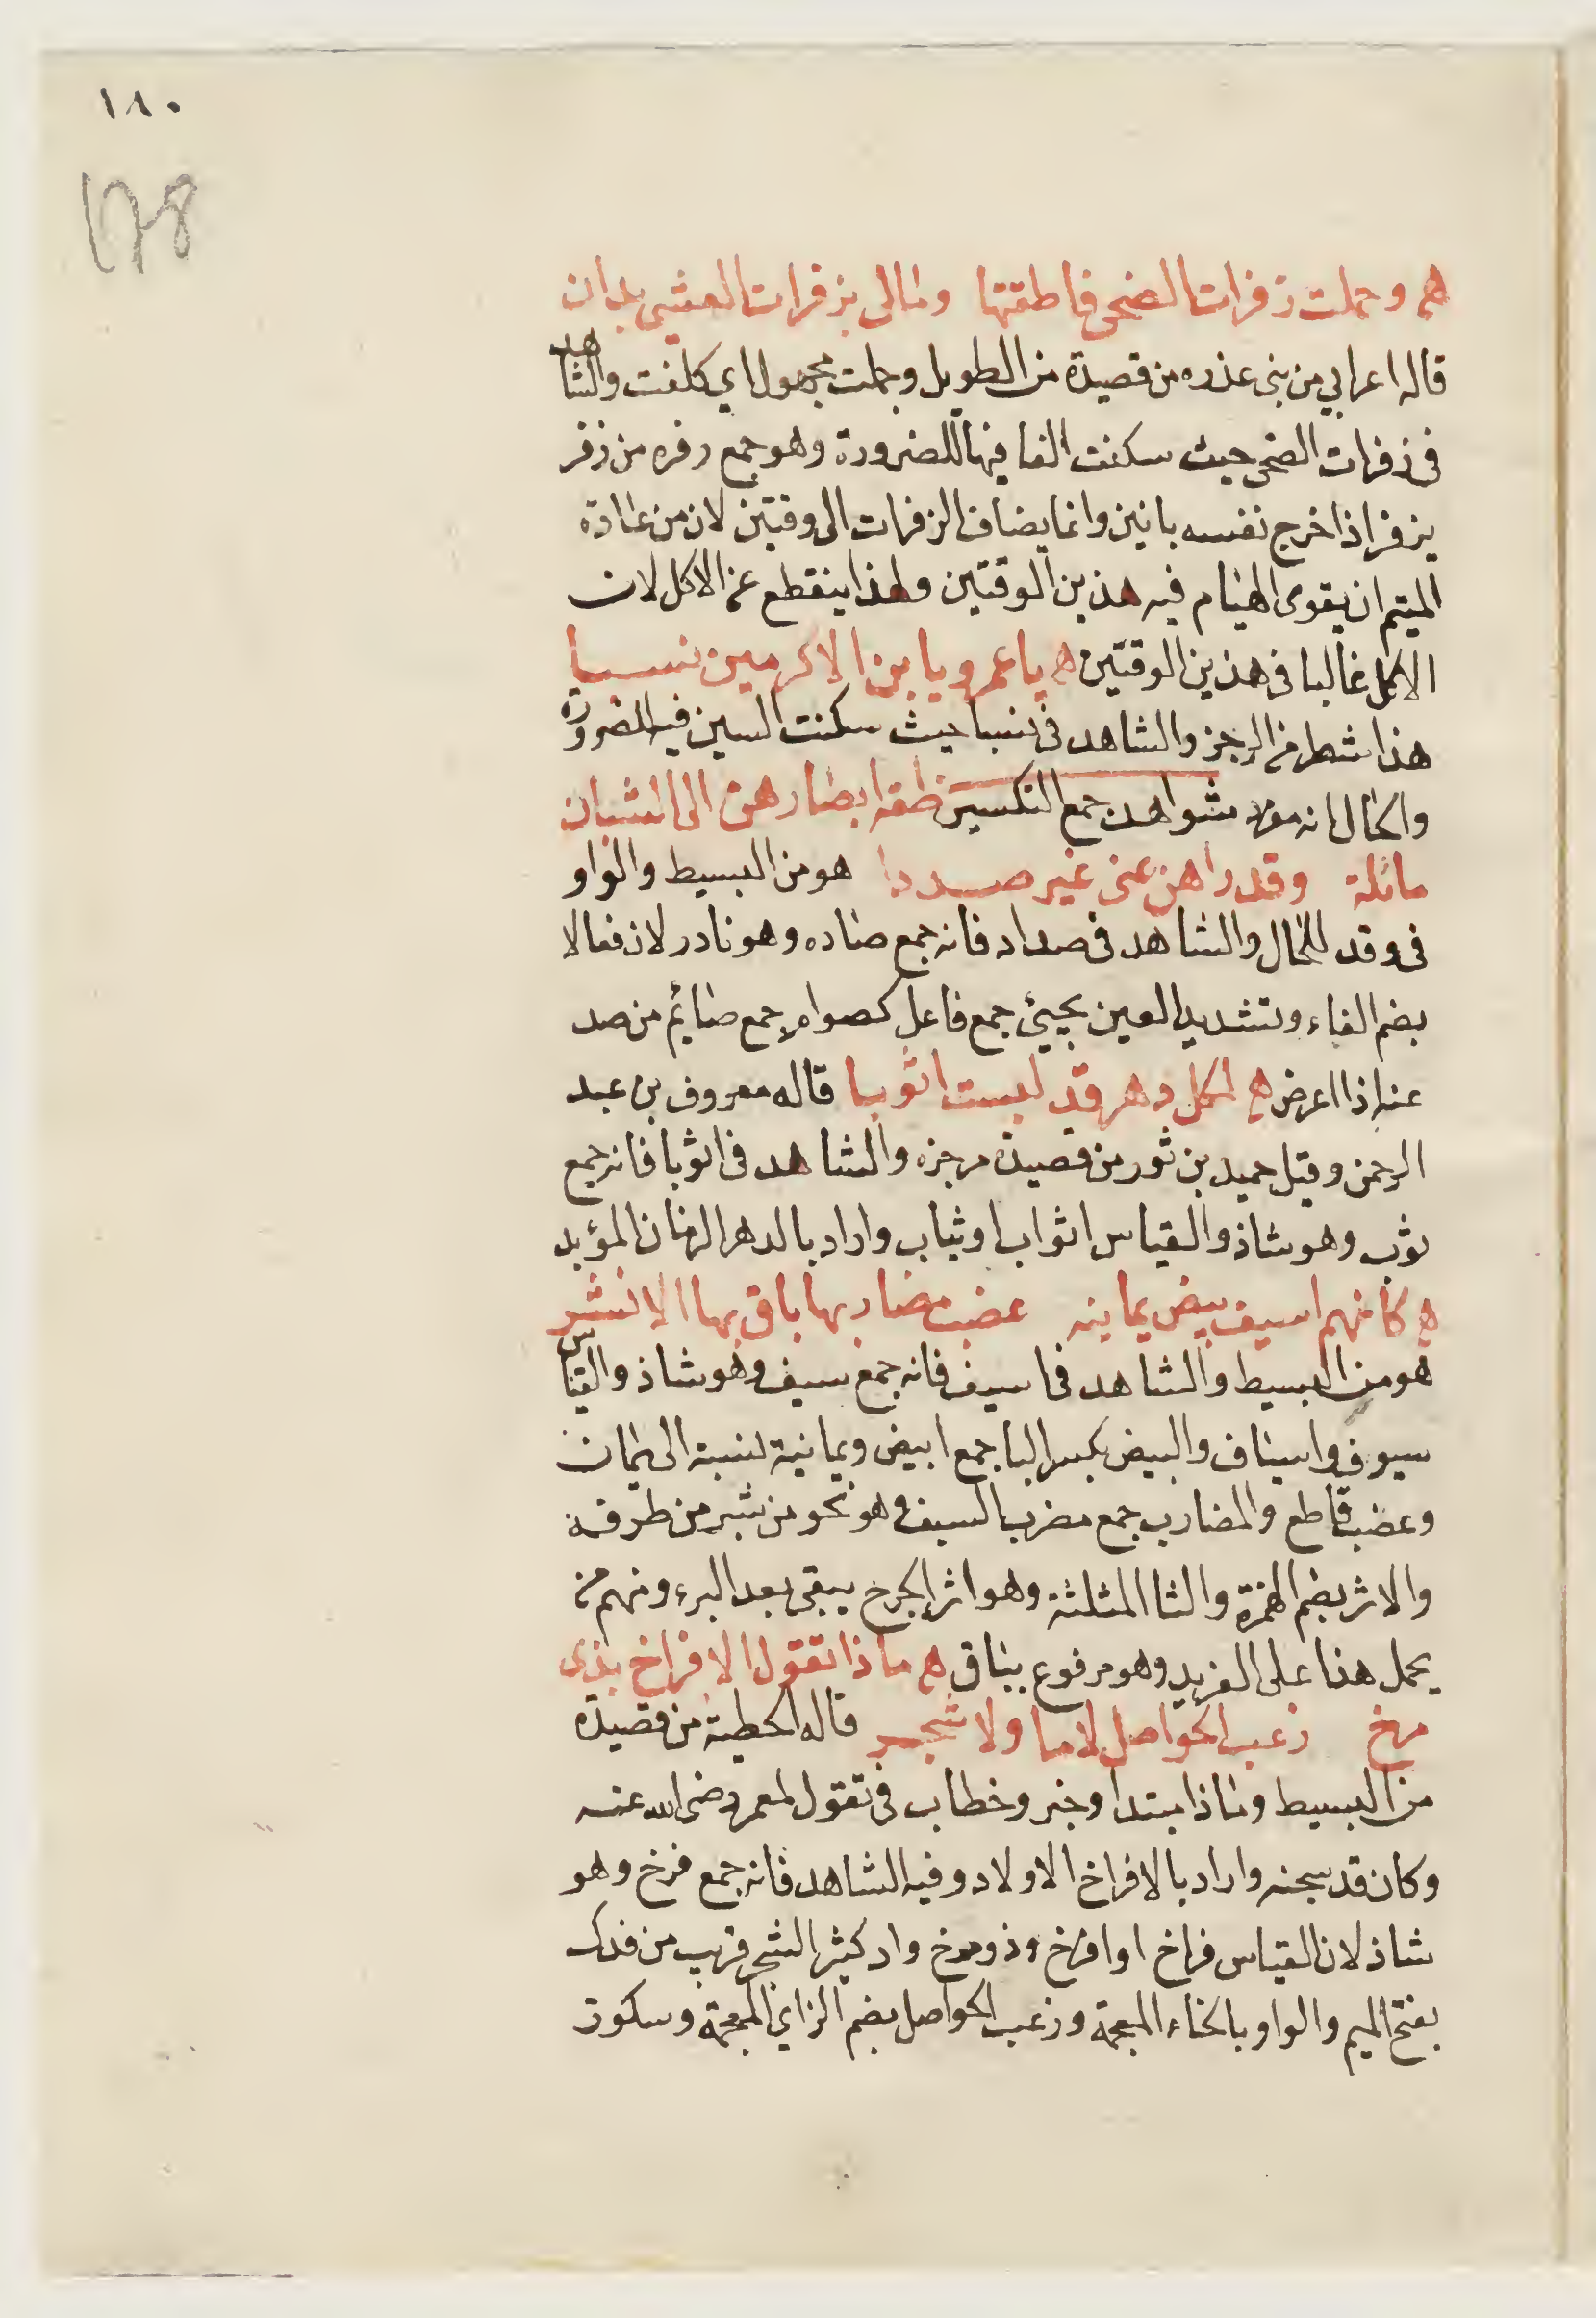 ١٨٠
178
هم وحملت زفرات الضحى فاطقتها ومالى بزفرات العشى يدان
قاله اعرابي من بنى عذره من قصيدة من الطويل وحملت مجهول اي كلفت والشاهد
فى زفرات الضحى حيث سكنت الفا فيها للضرورة وهو جمع زفره من زفر
يزفر اذا اخرج نفسه بانين وانما يضاف الزفرات الى وقتين لان من عادة
المتيم ان يقوى الهيام فيه هذين الوقتين ولهذا ينقطع عن الاكل لان
الاكل غالبا فى هذين الوقتين هم يا عمرو يا ابن الاكرمين نسبا
هذا شطر من الرجز والشاهد فى نسبا حيث سكنت السين فيه للضرورة
والحال انه مفرد شواهد جمع التكسير ظقه ابصارهن الى الشبان
مائلة وقد راهن عنى غير صداد هو من البسيط والواو
فى وقد للحال والشاهد فى صداد فانه جمع صاده وهو نادر لان فعالا
بضم الفاء وتشديد العين يجيئ جمع فاعل كصوام جمع صائم من صد
عنه اذا اعرض هم لكل دهر قد لبست اثوبا قاله معروف بن عبد
الرحمن وقيل حميد بن ثور من قصيدة مرجزه والشاهد فى اثوبا فانه جمع
ثوب وهو شاذ والقياس اثواب او ثياب واراد بالدهر الزمان المؤبد
هم كانهم اسيف بيض يمانيه عضب مضاربها باق بها الاثر
هو من البسيط والشاهد فى اسيف فانه جمع سيف وهو شاذ والقياس
سيوف واسياف والبيض بكسر البا جمع ابيض ويمانية نسبة الى يمان
وعضب قاطع والمضارب جمع مضرب السيف وهو نحو من شبر من طرفه
والاثر بضم الهمزة والثا المثلثة وهو اثر الجرح يبقى بعد البرء ومنهم من
يحمل هذا على الفريد وهو مرفوع بباق هم ماذا تقول لافراخ بذى
مرخ زغب الحواصل لا ما ولا شجر قاله الحطيئة من قصيدة
من البسيط وماذا مبتدا وخبر وخطاب فى تقول لعمر رضى الله عنه
وكان قد سجنه واراد بالافراخ الاولاد وفيه الشاهد فانه جمع فرخ وهو
شاذ لان القياس فراخ او افرخ وذو مرخ واد كثير الشجر قريب من فدك
بفتح الميم والواو بالخاء المعجمة وزغب الحواصل بضم الزاي المعجمة وسكون